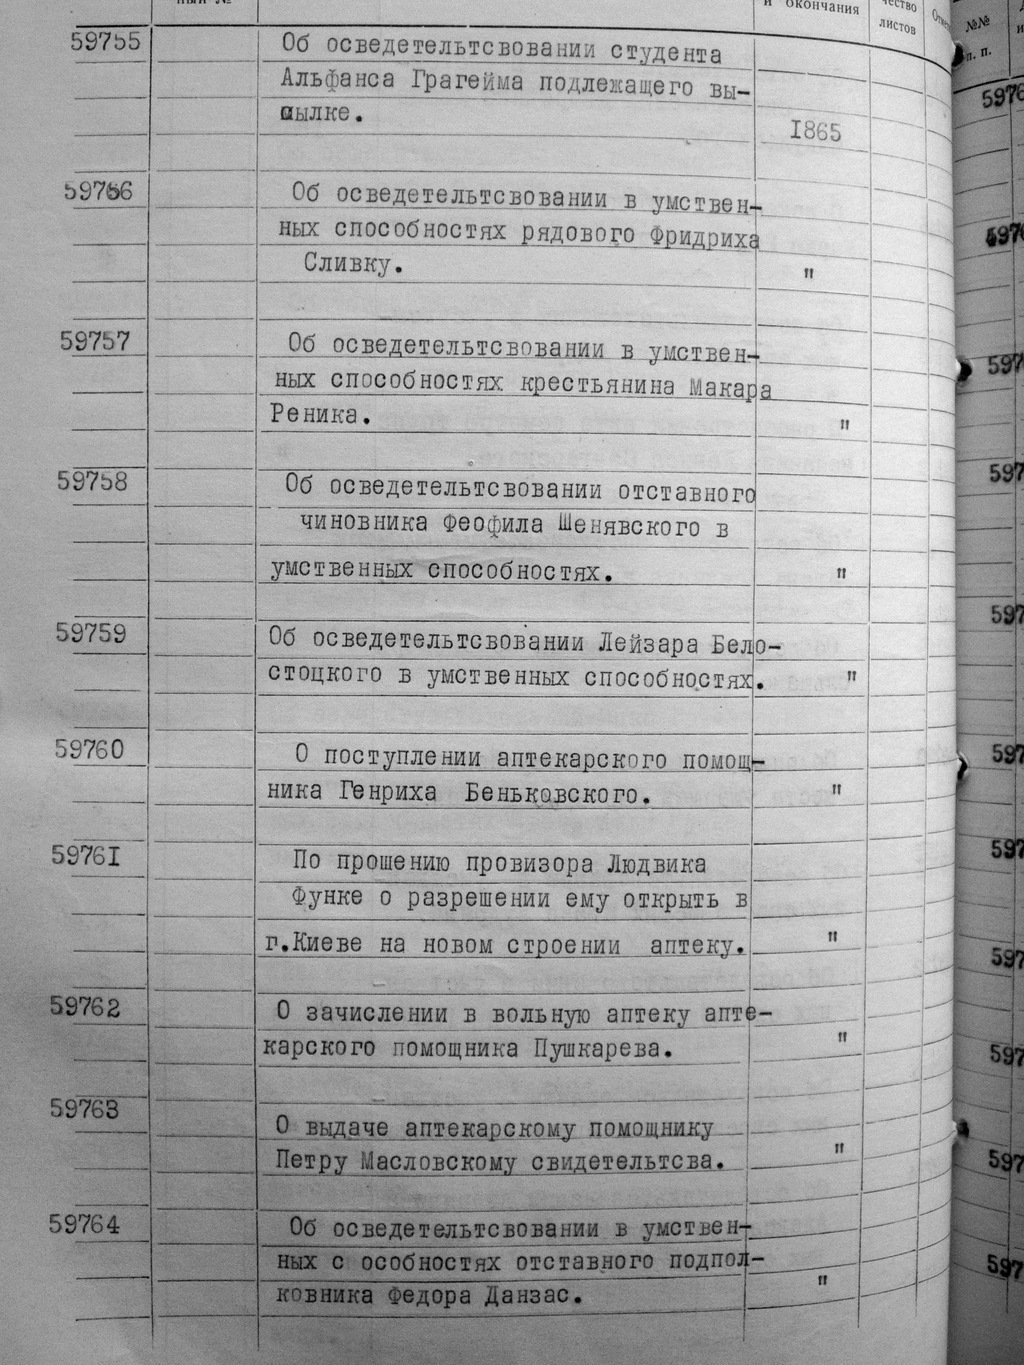 ный №
и окончания
листов
№№
п. п.
59755
Об осведетельтсвовании студента
Альфанса Грагейма подлежащего вы-
сылке.
1865
59756
Об осведетельтсвовании в умствен-
ных способностях рядового Фридриха
Сливку.
"
59757
Об осведетельтсвовании в умствен-
ных способностях крестьянина Макара
Реника.
"
59758
Об осведетельтсвовании отставного
чиновника Феофила Шенявского в
умственных способностях.
"
59759
Об осведетельтсвовании Лейзара Бело-
стоцкого в умственных способностях.
"
59760
О поступлении аптекарского помощ-
ника Генриха Беньковского.
"
59761
По прошению провизора Людвика
Функе о разрешении ему открыть в
г.Киеве на новом строении аптеку.
"
59762
О зачислении в вольную аптеку апте-
карского помощника Пушкарева.
"
59763
О выдаче аптекарскому помощнику
Петру Масловскому свидетельтсва.
"
59764
Об осведетельтсвовании в умствен-
ных с особностях отставного подпол-
ковника Федора Данзас.
"